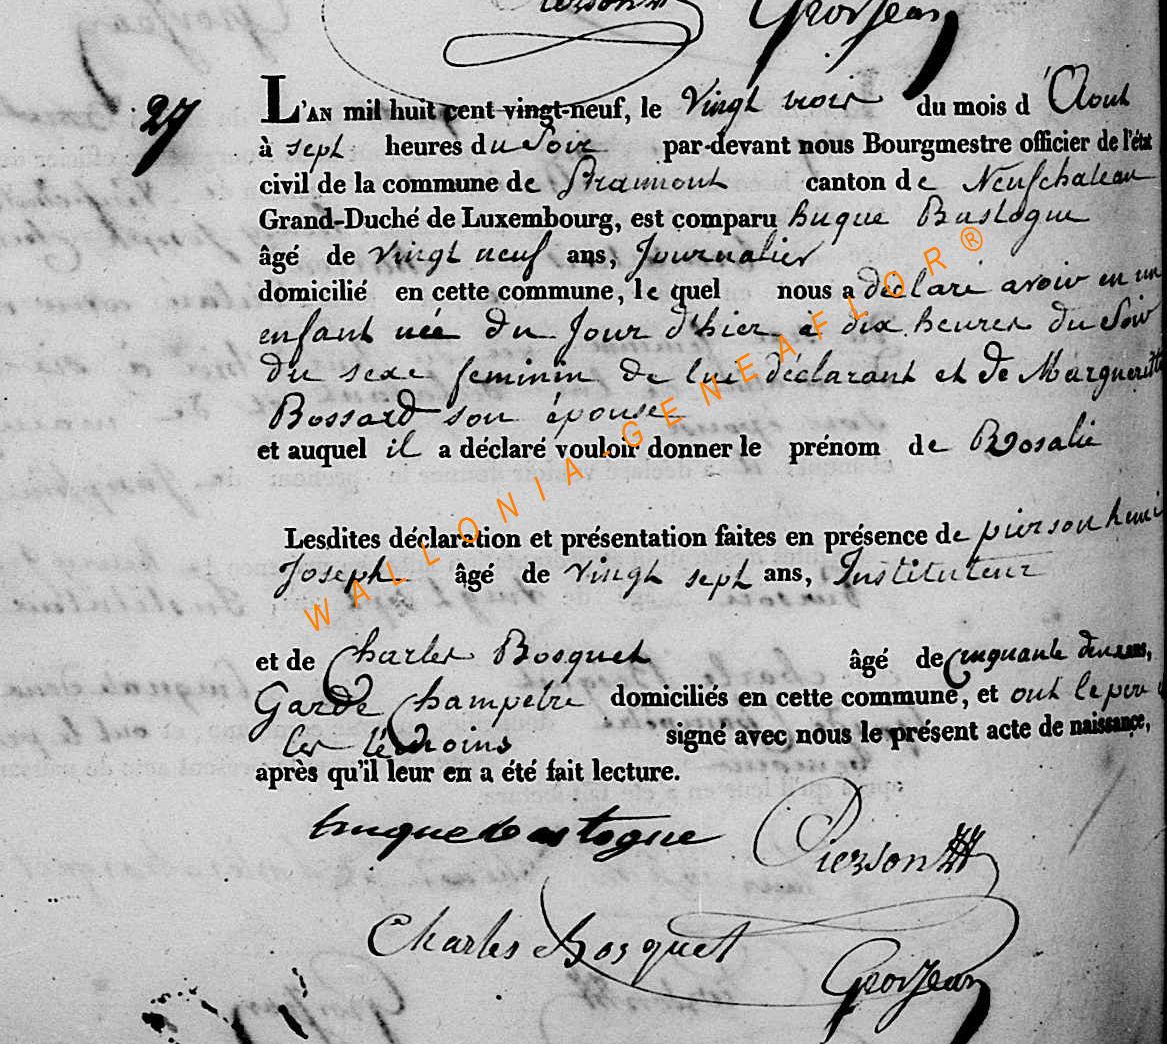 Pierson Grosjean
27
L'AN mil huit cent vingt-neuf, le Vingt trois du mois d'Aout
à sept heures du Soir par-devant nous Bourgmestre officier de l'état
civil de la commune de Straimont canton de Neufchateau
Grand-Duché de Luxembourg, est comparu huque Bastogne
âgé de vingt neuf ans, Journalier
domicilié en cette commune, le quel nous a déclaré avoir eu un
enfant née du Jour d'hier à dix heures du Soir
du sexe feminin de lui déclarant et de Margueritte
Bossard son épouse
et auquel il a déclaré vouloir donner le prénom de Rosalie
Lesdites déclaration et présentation faites en présence de pierson henri
Joseph âgé de vingt sept ans, Instituteur
et de Charles Bosquet âgé de cinquante deux ans,
Garde Champetre domiciliés en cette commune, et ont le pere
les témoins signé avec nous le présent acte de naissance,
après qu'il leur en a été fait lecture.
huque bastogne Pierson
Charles Bosquet Grosjean
WALLONIA-GENEAFLOR®